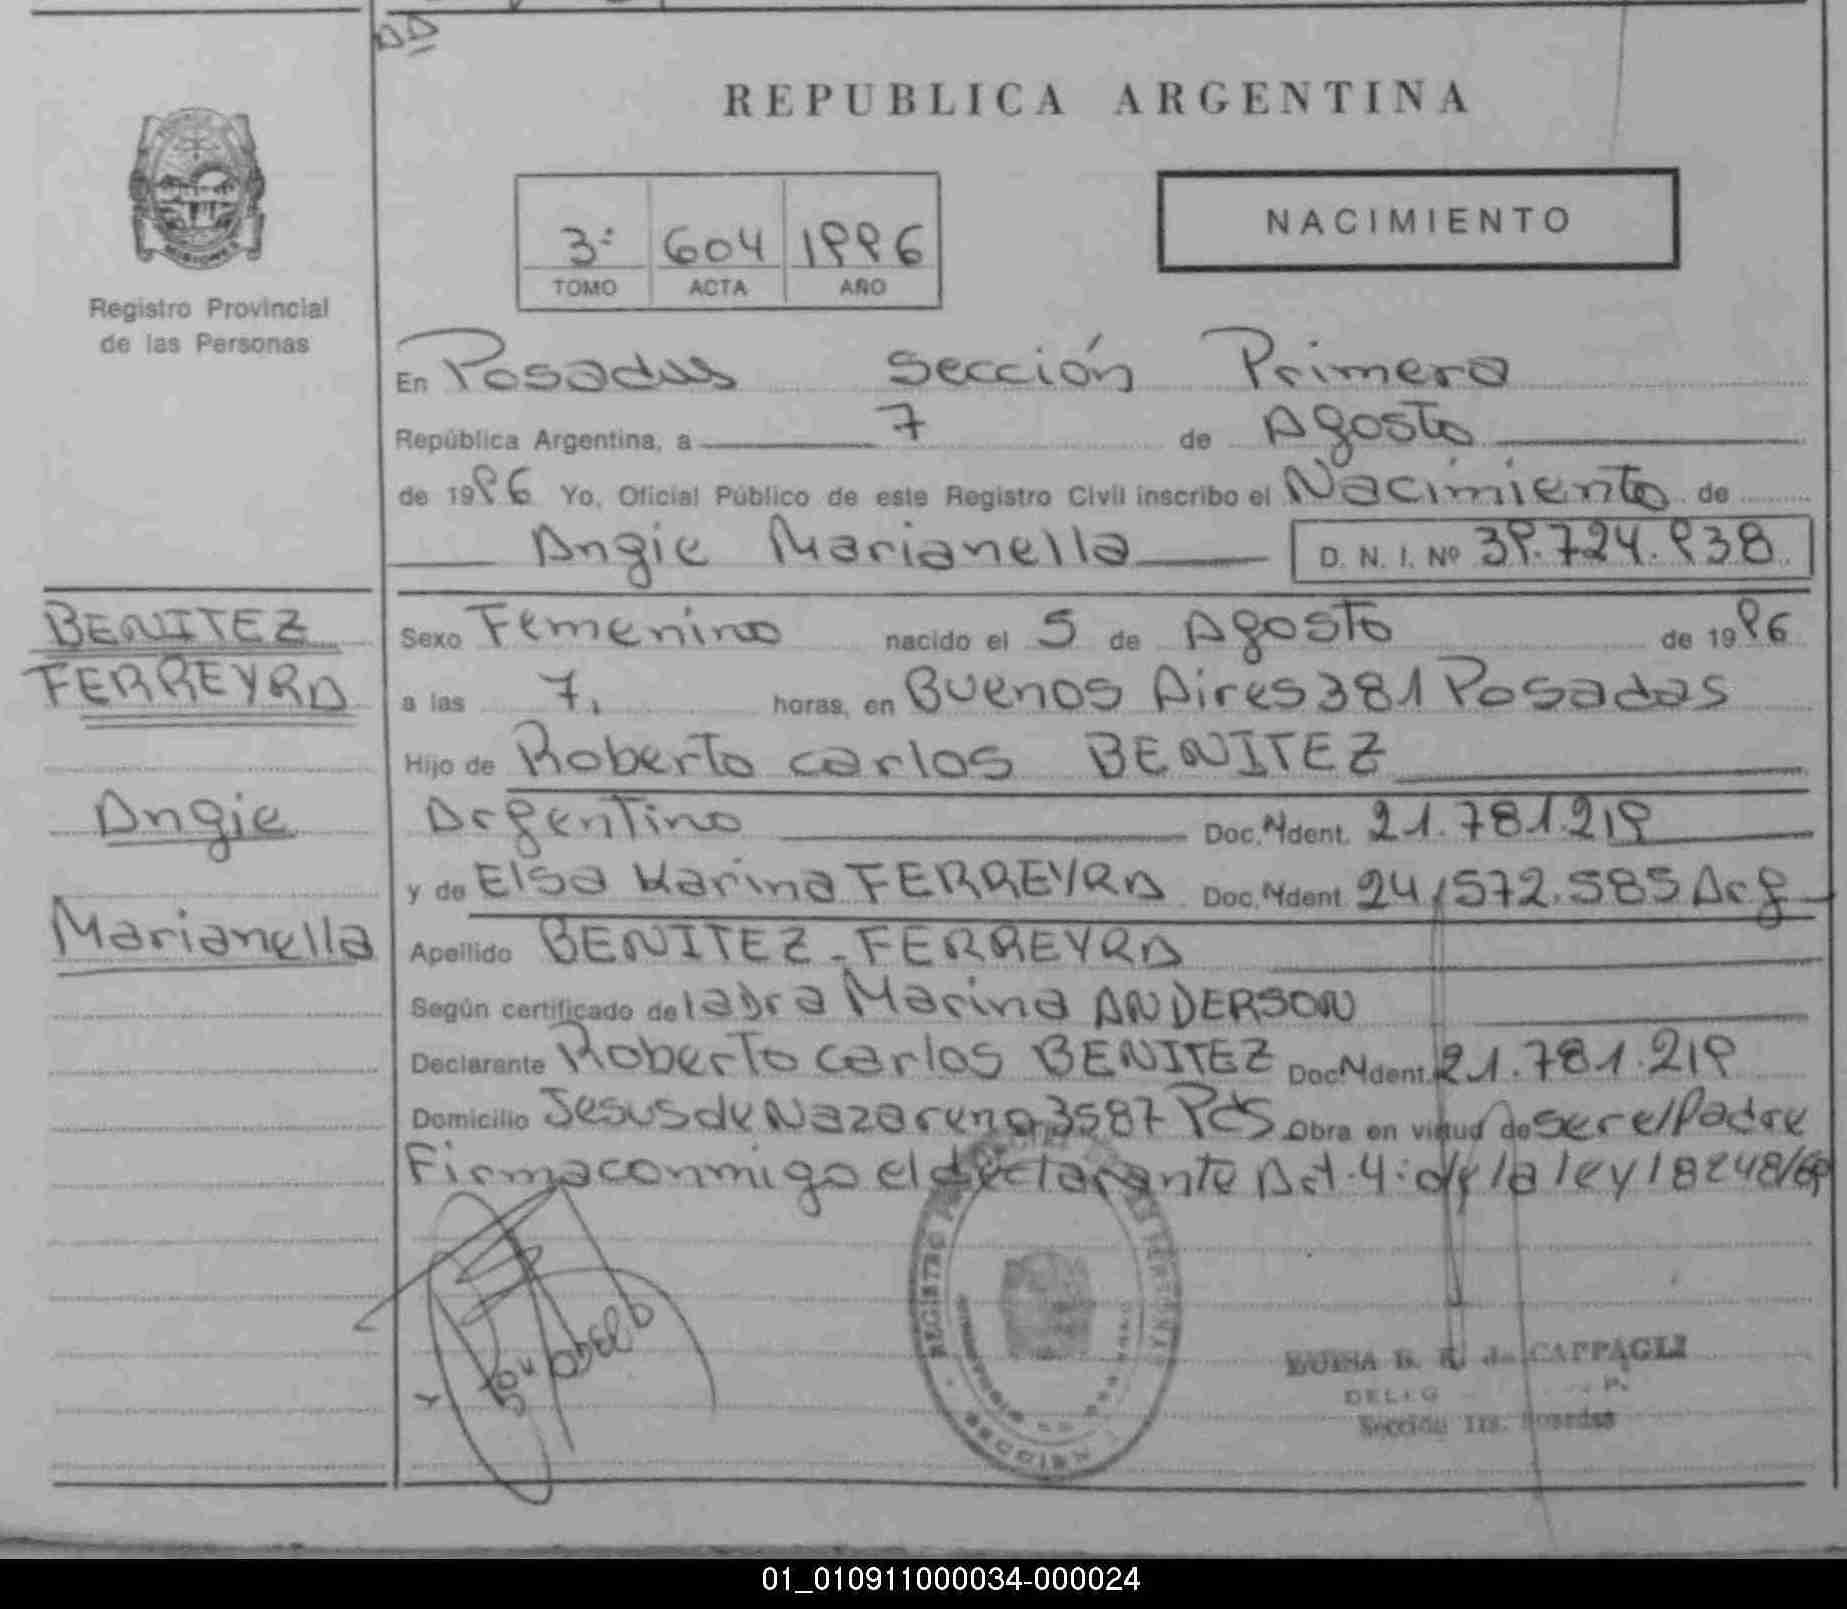 DD
REPUBLICA ARGENTINA
NACIMIENTO
3ª 604 1996
TOMO ACTA AÑO
MISIONES
Registro Provincial
de las Personas
En Posadas Sección Primera
República Argentina, a 7 de Agosto
de 1996 Yo, Oficial Público de este Registro Civil inscribo el Nacimiento de
Angie Marianella D. N. I. Nº 39.724.938
BENITEZ
FERREYRA
Angie
Marianella
Sexo Femenino nacido el 5 de Agosto de 1996
a las 7, horas, en Buenos Aires 381 Posadas
Hijo de Roberto Carlos BENITEZ
Argentino Doc. Ident. 21.781.219
y de Elsa Karina FERREYRA Doc. Ident. 24.572.585 Arg
Apellido BENITEZ - FERREYRA
Según certificado de la Dra Marina ANDERSON
Declarante Roberto Carlos BENITEZ Doc. Ident. 21.781.219
Domicilio Jesus de Nazareno 3587 Pds Obra en virtud de ser el Padre
Firma conmigo el declarante Art. 4: de la ley 18248/69
REGISTRO
SECCION
LUISA B. R. de CAPPAGLI
DELEG
Sección 1ra. Posadas
01_010911000034-000024